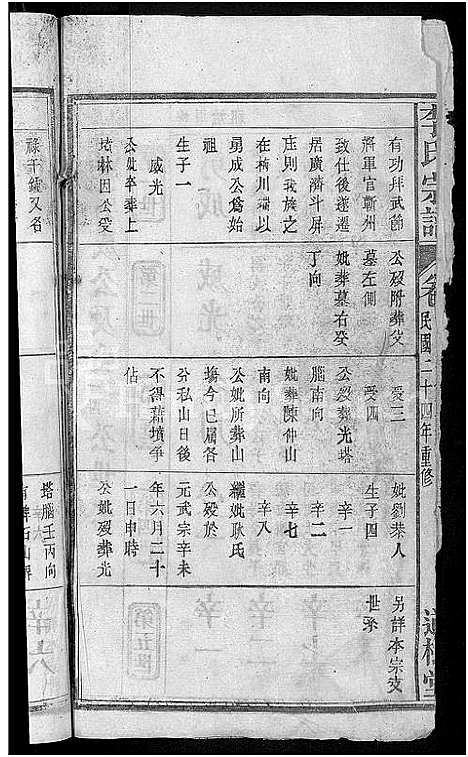 李氏宗譜
卷
民國二十四年重修
有功拜武節
將軍官蘄州
致仕後遂遷
居廣濟斗屏
庄則我族之
在梅川鋪以
勇成公為始
祖
生子一
威光
公妣卒葬上
塔林因公受
公殁附葬父
墓左側
妣葬墓右癸
丁向
受三
受四
公殁葬光塔
腦南向
妣葬陳仲山
南向
公妣所葬山
塲今已屆各
分私山日後
不得藉墳爭
佔
妣劉恭人
生子四
辛一
辛二
辛七
辛八
繼妣耿氏
公殁於
元武宗辛未
年六月二十
一日申時
公妣殁葬光
另詳本宗支
世系
祿千鍾又名
塔腦壬丙向